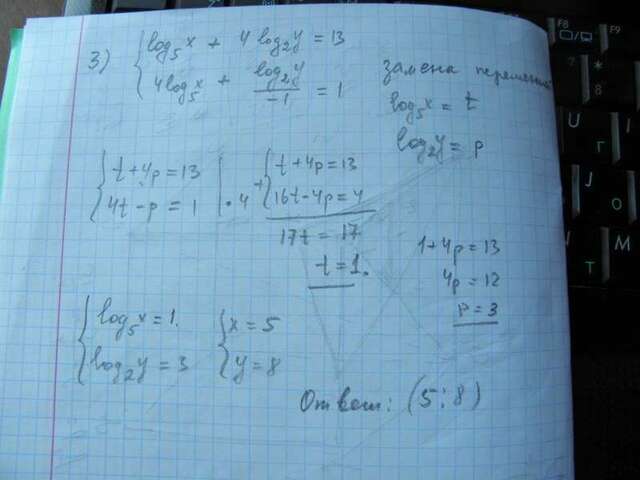 3) { log₅x + 4 log₂y = 13
{ 4log₅x + log₂y/-1 = 1
замена перемен
log₅x = t
log₂y = p
{ t + 4p = 13
{ 4t - p = 1 | · 4
+ { t + 4p = 13
{ 16t - 4p = 4
17t = 17
t = 1.
1 + 4p = 13
4p = 12
p = 3
{ log₅x = 1.
{ log₂y = 3
{ x = 5
{ y = 8
Ответ: (5; 8)
F8
F9
7
8
U
Г
J
О
M
Т